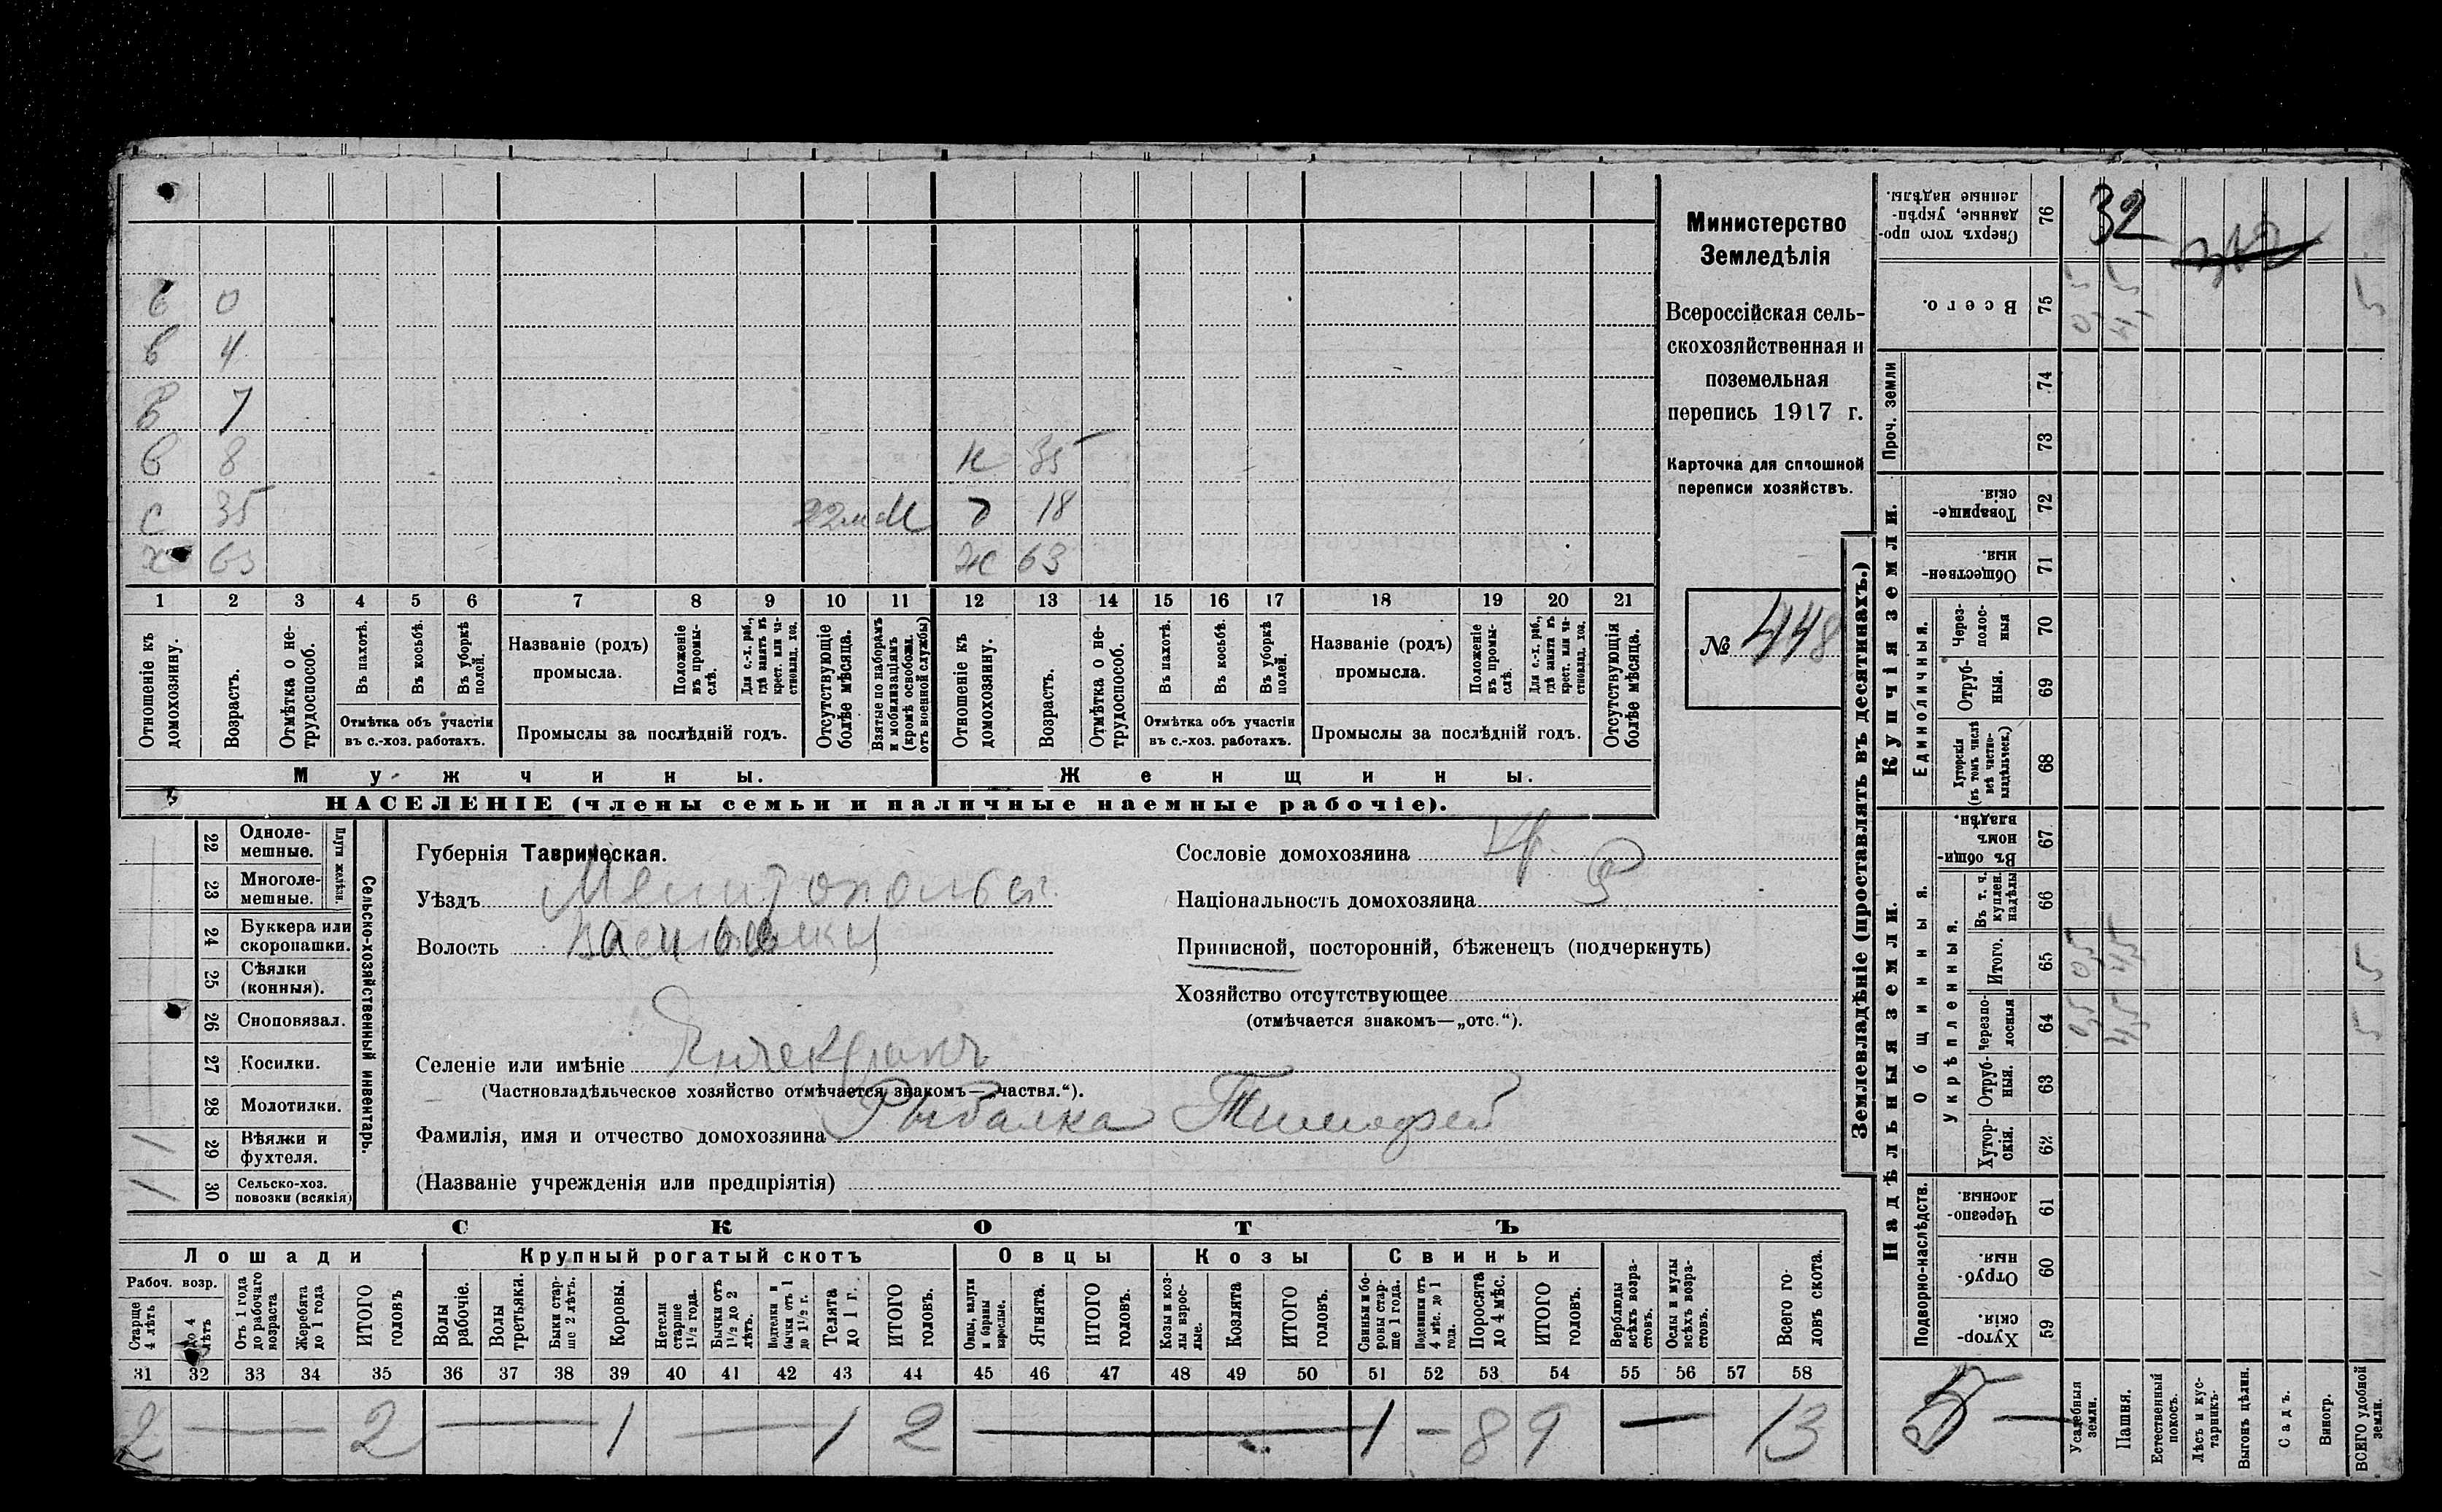 Министерство
Земледѣлія
Всероссійская сель-
скохозяйственная и
поземельная
перепись 1917 г.
Карточка для сплошной
переписи хозяйствъ.
№ 448
в 0
в 4
в 7
в 8
с 35 22 м М
х 63
н 35
д 18
ж 63
1 2 3 4 5 6 7 8 9 10 11 12 13 14 15 16 17 18 19 20 21
Отношеніе къ домохозяину.
Возрастъ.
Отмѣтка о не-трудоспособ.
Въ пахотѣ.
Въ косьбѣ.
Въ уборкѣ полей.
Отмѣтка объ участіи
въ с.-хоз. работахъ.
Названіе (родъ)
промысла.
Положеніе въ промы-слѣ.
Для с.-х. раб., гдѣ занятъ въ крест. или ча-стновлад. хоз.
Промыслы за послѣдній годъ.
Отсутствующіе болѣе мѣсяца.
Взятые по наборамъ и мобилизаціямъ (кромѣ освобожд. отъ военной службы)
Отношеніе къ домохозяину.
Возрастъ.
Отмѣтка о не-трудоспособ.
Въ пахотѣ.
Въ косьбѣ.
Въ уборкѣ полей.
Отмѣтка объ участіи
въ с.-хоз. работахъ.
Названіе (родъ)
промысла.
Положеніе въ промы-слѣ.
Для с.-х. раб., гдѣ занята въ крест. или ча-стновлад. хоз.
Промыслы за послѣдній годъ.
Отсутствующія болѣе мѣсяца.
Мужчины.
Женщины.
НАСЕЛЕНІЕ (члены семьи и наличные наемные рабочіе).
22 Одноле-мешные.
23 Многоле-мешные.
Плуги желѣзн.
24 Буккера или скоропашки.
25 Сѣялки (конныя).
26 Сноповязал.
27 Косилки.
28 Молотилки.
29 Вѣялки и фухтеля. 1
30 Сельско-хоз. повозки (всякія) 1
Сельско-хозяйственный инвентарь.
Губернія Таврическая.
Уѣздъ Мелитопольск.
Волость
Селеніе или имѣніе
(Частновладѣльческое хозяйство отмѣчается знакомъ—„частвл.“).
Фамилія, имя и отчество домохозяина Рыбалка Тимофей
(Названіе учрежденія или предпріятія)
Сословіе домохозяина Кр.
Національность домохозяина Р
Приписной, посторонній, бѣженецъ (подчеркнуть)
Хозяйство отсутствующее
(отмѣчается знакомъ—„отс.“).
СКОТЪ
Лошади
Крупный рогатый скотъ
Овцы
Козы
Свиньи
Рабоч. возр.
Старше 4 лѣтъ
До 4 лѣтъ
Отъ 1 года до рабочаго возраста
Жеребята до 1 года
ИТОГО головъ
Волы рабочіе.
Волы третьяки.
Быки стар-ше 2 лѣтъ.
Коровы.
Нетели старше 1½ года.
Бычки отъ 1½ до 2 лѣтъ.
Подтелки и бычки отъ 1 до 1½ г.
Телята до 1 г.
ИТОГО головъ.
Овцы, валухи и бараны взрослые.
Ягнята.
ИТОГО головъ.
Козы и коз-лы взрос-лые.
Козлята
ИТОГО головъ.
Свиньи и бо-ровы стар-ше 1 года.
Подсвинки отъ 4 мѣс. до 1 года.
Поросята до 4 мѣс.
ИТОГО головъ.
Верблюды всѣхъ возра-стовъ.
Ослы и мулы всѣхъ возра-стовъ.
Всего го-ловъ скота.
31 32 33 34 35 36 37 38 39 40 41 42 43 44 45 46 47 48 49 50 51 52 53 54 55 56 57 58
2 — 2 — 1 — 1 2 — 1 — 8 9 — 13
Землевладѣніе (проставлять въ десятинахъ.)
Купчія земли.
Надѣльныя земли.
Сверхъ того про-данные, укрѣп-ленные надѣлы. 76 32
Всего. 75 0,5 4,5 5
Проч. земли
74
73
Товарище-скія. 72
Обществен-ныя. 71
Единоличныя.
Через-полос-ныя 70
Отруб-ныя. 69
Хуторскія (въ томъ числѣ всѣ частно-владѣльческ.) 68
Общинныя.
Въ общин-номъ владѣн. 67
Укрѣпленныя.
Въ т. ч. куплен. надѣлы 66
Итого. 65 0,5 4,5 5
Черезпо-лосныя 64 0,5 4,5 5
Отруб-ныя. 63
Хутор-скія. 62
Подворно-наслѣдств.
Черезпо-лосныя. 61
Отруб-ныя. 60
Хутор-скія. 59
5 —
Усадебныя земли.
Пашня.
Естественный покосъ.
Лѣсъ и кус-тарникъ.
Выгонъ цѣлин.
Садъ.
Виногр.
ВСЕГО удобной земли.